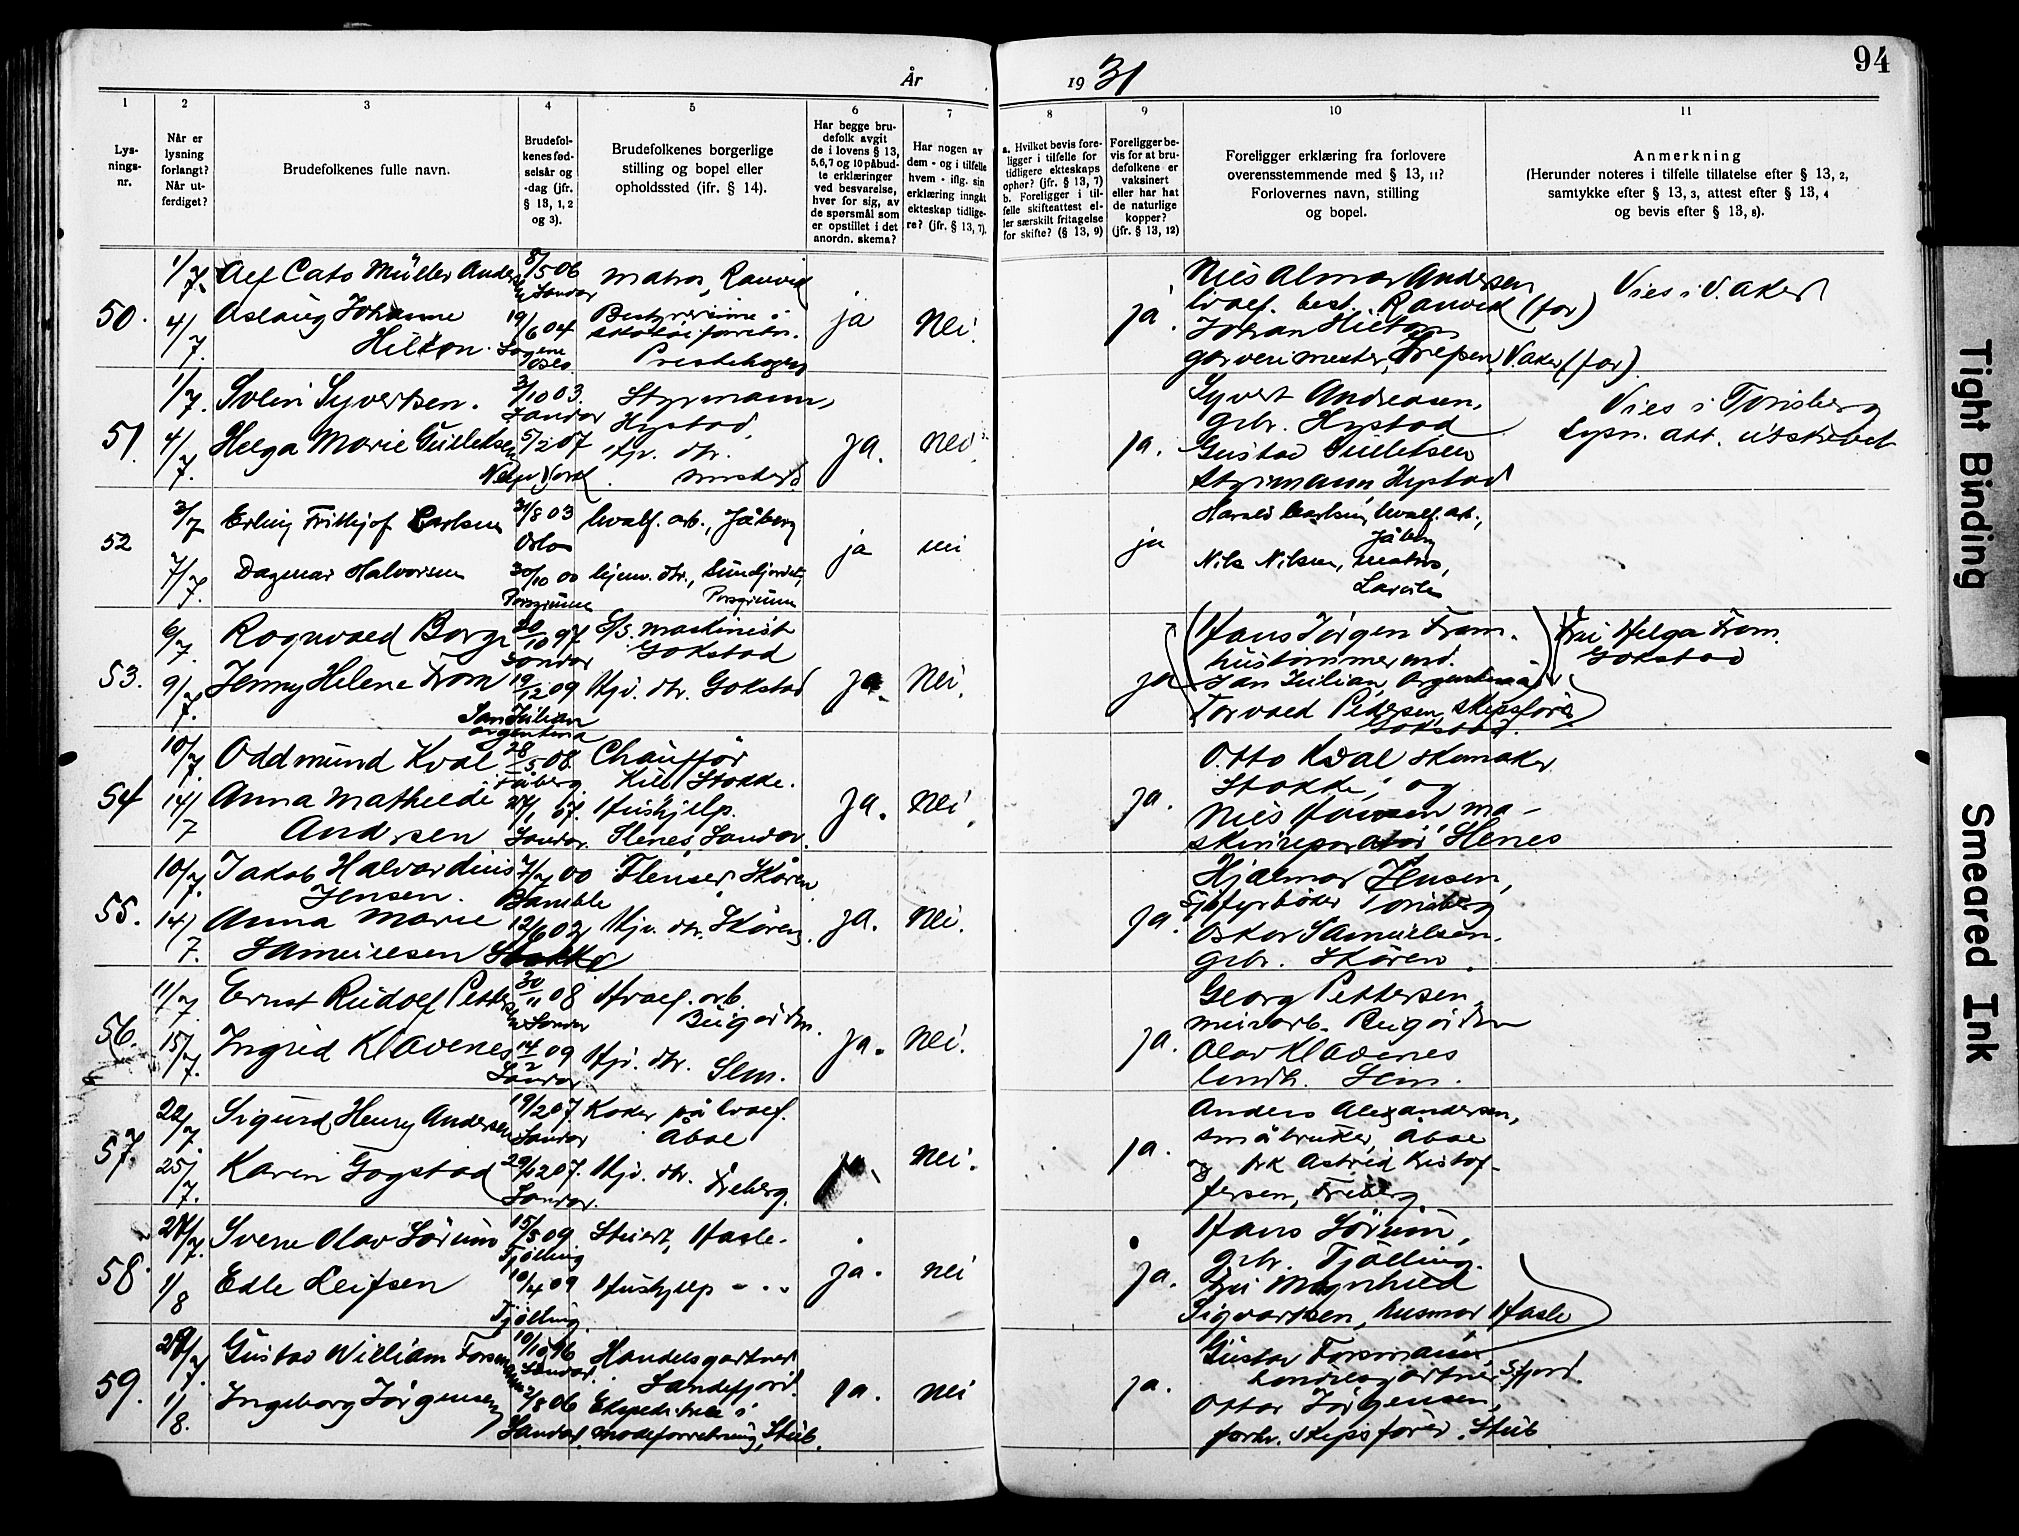 År
19 31
94
1
2
3
4
5
6
7
8
9
10
11
Lys-
nings-
nr.
Når er
lysning
forlangt?
Når ut-
ferdiget?
Brudefolkenes fulle navn.
Brudefol-
kenes fød-
selsår og
-dag (jfr.
§ 13, 1, 2
og 3).
Brudefolkenes borgerlige
stilling og bopel eller
opholdssted (ifr. § 14).
Har begge bru-
defolk avgit
de i lovens § 13,
5,6,7 og 10 påbud-
te erklæringer
ved besvarelse,
hver for sig, av
de spørsmål som
er opstillet i det
anordn. skema?
Har nogen av
dem - og i tilfelle
hvem - iflg. sin
erklæring inngåt
ekteskap tidlige-
re? (jfr. § 13, 7).
a. Hvilket bevis fore-
ligger i tilfelle for
tidligere ekteskaps
ophør? (jfr. § 13, 7)
b. Foreligger i til-
felle skifteattest el-
ler særskilt fritagelse
for skifte? (§ 13, 9)
Foreligger be-
vis for at bru-
defolkene er
vaksinert
eller har hat
de naturlige
kopper?
(jfr. § 13, 12)
Foreligger erklæring fra forlovere
overensstemmende med § 13, 11?
Forlovernes navn, stilling
og bopel.
Anmerkning
(Herunder noteres i tilfelle tillatelse efter § 13, 2,
samtykke efter § 13, 3, attest efter § 13, 4
og bevis efter § 13, 8).
50.
1/7.
4/7.
Alf Cato Müller Andersen
8/5 06
Sandar
Matros, Ranvik
Aslaug Johanne
Hilton.
19/6 04
Sagene
Oslo
Bestyrerinne i
skotøiforretn.
ja
Nei
ja.
Nils Almar Andersen
hvalf. best. Ranvik (far)
Johan Hilton
garverimester, V. Aker (far)
Vies i V. Aker
51.
1/7.
4/7.
Solvi Syvertsen.
3/10 03.
Sandar
Styrmann,
Hystad,
Helga Marie Gulliksen
5/2 07
New York
Hjv. dtr.
ja.
Nei
ja.
Syvert Andreasen,
gbr. Hystad
Gustav Gulliksen
Styrmann Hystad
Vies i Tønsberg
Lysn. att. utskrevet
52
3/7
7/7.
Erling Frithjof Carlsen
31/8 03
Oslo
hvalf. arb., Jåberg
Dagmar Halvorsen
30/10 00
Porsgrunn
hjemv. dtr.,
Porsgrunn
ja
nei
ja
Harald Carlsen, hvalf. arb.,
Jåberg
Nils Nilsen, matros,
Larvik
53.
6/7.
9/7.
Rognvald Borge
20/10 97
Sandar
maskinist
Gokstad
Jenny Helene Fram
19/12 09
San Julian
Argentina
Hjv. dtr. Gokstad
ja.
Nei.
ja
Hans Jørgen Fram.
hustømmermd.
San Julian, Argentina
Torvald Pedersen, skipsfører
Gokstad.
Fru Helga Fram
Gokstad
54
10/7.
14/7
Oddmund Kval
28/5 08
Fåberg
Chauffør
Kill Stokke.
Anna Mathilde
Andersen
Sandar.
Hushjelp.
Stenes, Sandar.
ja.
Nei.
ja.
Otto Kval skomaker
Stokke, og
Nils Hansen ma-
skinreparatør Stenes
55.
10/7.
14/7.
Jakob Halvardius
Jensen.
7/7 00
Bamble
Flenser, Skåren
Anna Marie
Samuelsen
12/6 02
Stokke
Hjv. dtr. Skåren
ja.
Nei.
ja.
Hjalmar Jensen,
fyrbøter Tønsberg
Oskar Samuelsen.
gbr. Skåren.
56.
11/7.
15/7.
Ernst Rudolf Pettersen
30/11 08
Sandar
Hvalf. arb.
Bugården.
Ingrid Klavenes
14/2 09
Sandar
Hjv. dtr. Sem.
ja.
Nei.
ja.
Georg Pettersen,
murarb. Bugården
Olav Klavenes
landh. Sem.
57.
22/7.
25/7.
Sigurd Henry Andersen
19/2 07.
Sandar
Koker på hvalf.
Åbol
Karen Gogstad
Sandar.
Hjv. dtr. Freberg.
ja.
Nei.
ja.
Anders Alexandersen,
småbruker, Åbol
og frk Astrid Kristof-
fersen, Freberg.
58.
27/7.
1/8
Sverre Olav Sørum
15/5 09
Tjølling
Stuert, Hasle.
Edle Leifsen
10/4 09
Tjølling.
Hushjelp - " -
ja.
Nei
ja.
Hans Sørum,
gbr. Tjølling.
fru Magnhild
Sigvartsen, husmor Hasle
59.
29/7.
1/8.
Gustav William Forsmann
Sandar.
Handelsgartner
Sandefjord.
Ingeborg Jørgensen
2/8 06
Sandar.
Ekspeditrise i
modeforretning, Stub.
ja.
Nei
ja.
Gustav Forsmann,
handelsgartner, Sfjord.
Ottar Jørgensen,
forhv. skipsfører, Stub
Tight Binding
Smeared Ink